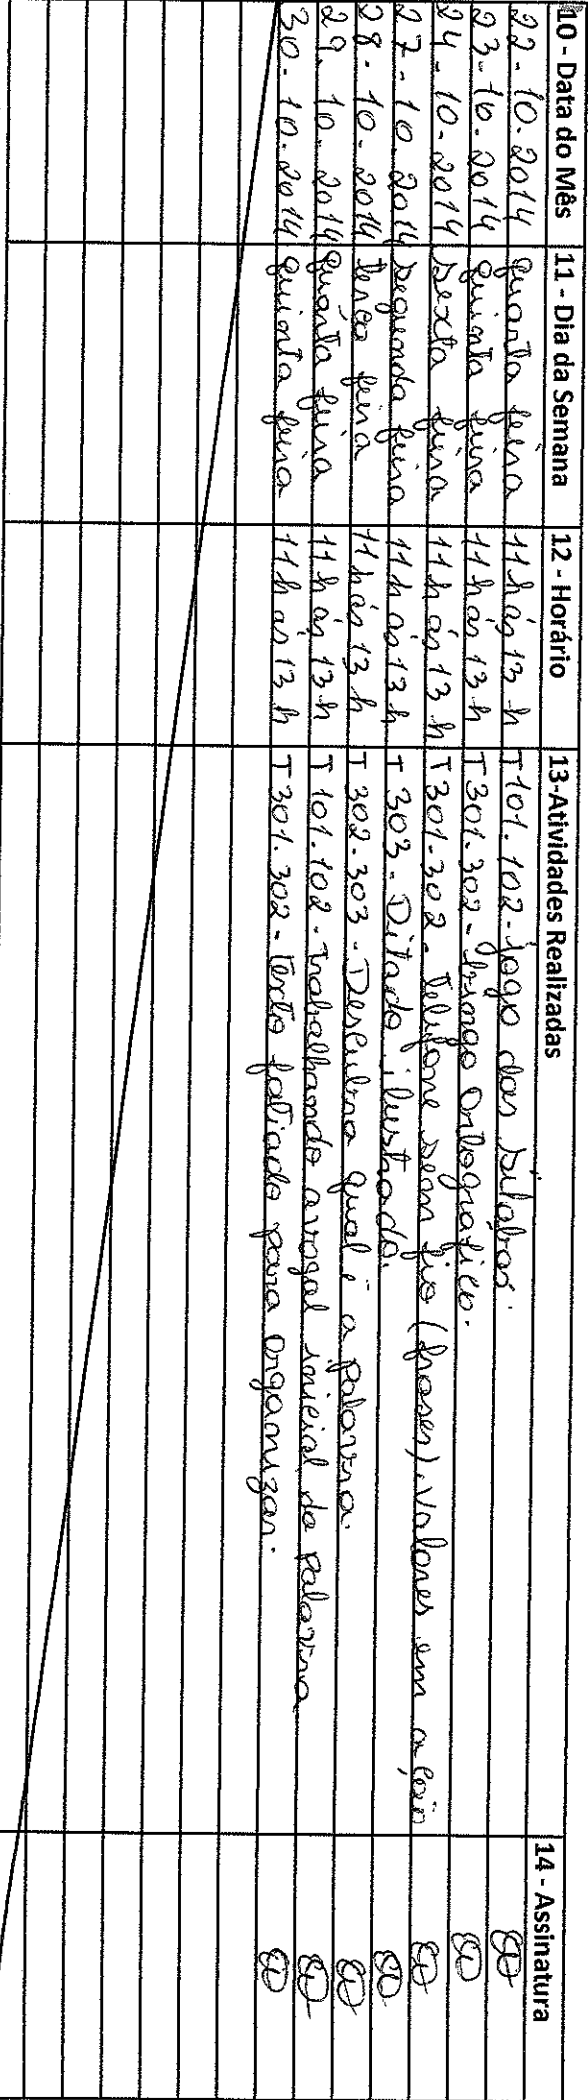 10 - Data do Mês 11 - Dia da Semana 12 - Horário 13-Atividades Realizadas 14 - Assinatura
22-10-2014 quarta feira 11h às 13h T101.102-jogo das sílabas.
23-10-2014 quinta feira 11h às 13h T301.302-bingo Ortográfico.
24-10-2014 sexta feira 11h às 13h T301-302-telefone sem fio (frases), valores em ação
27-10-2014 segunda feira 11h às 13h T303-Ditado ilustrado.
28-10-2014 terça feira 11h às 13h T302-303-Descubra qual é a palavra.
29-10-2014 quarta feira 11h às 13h T101.102-trabalhando a vogal inicial da palavra
30-10-2014 quinta feira 11h às 13h T301.302-texto fatiado para organizar.